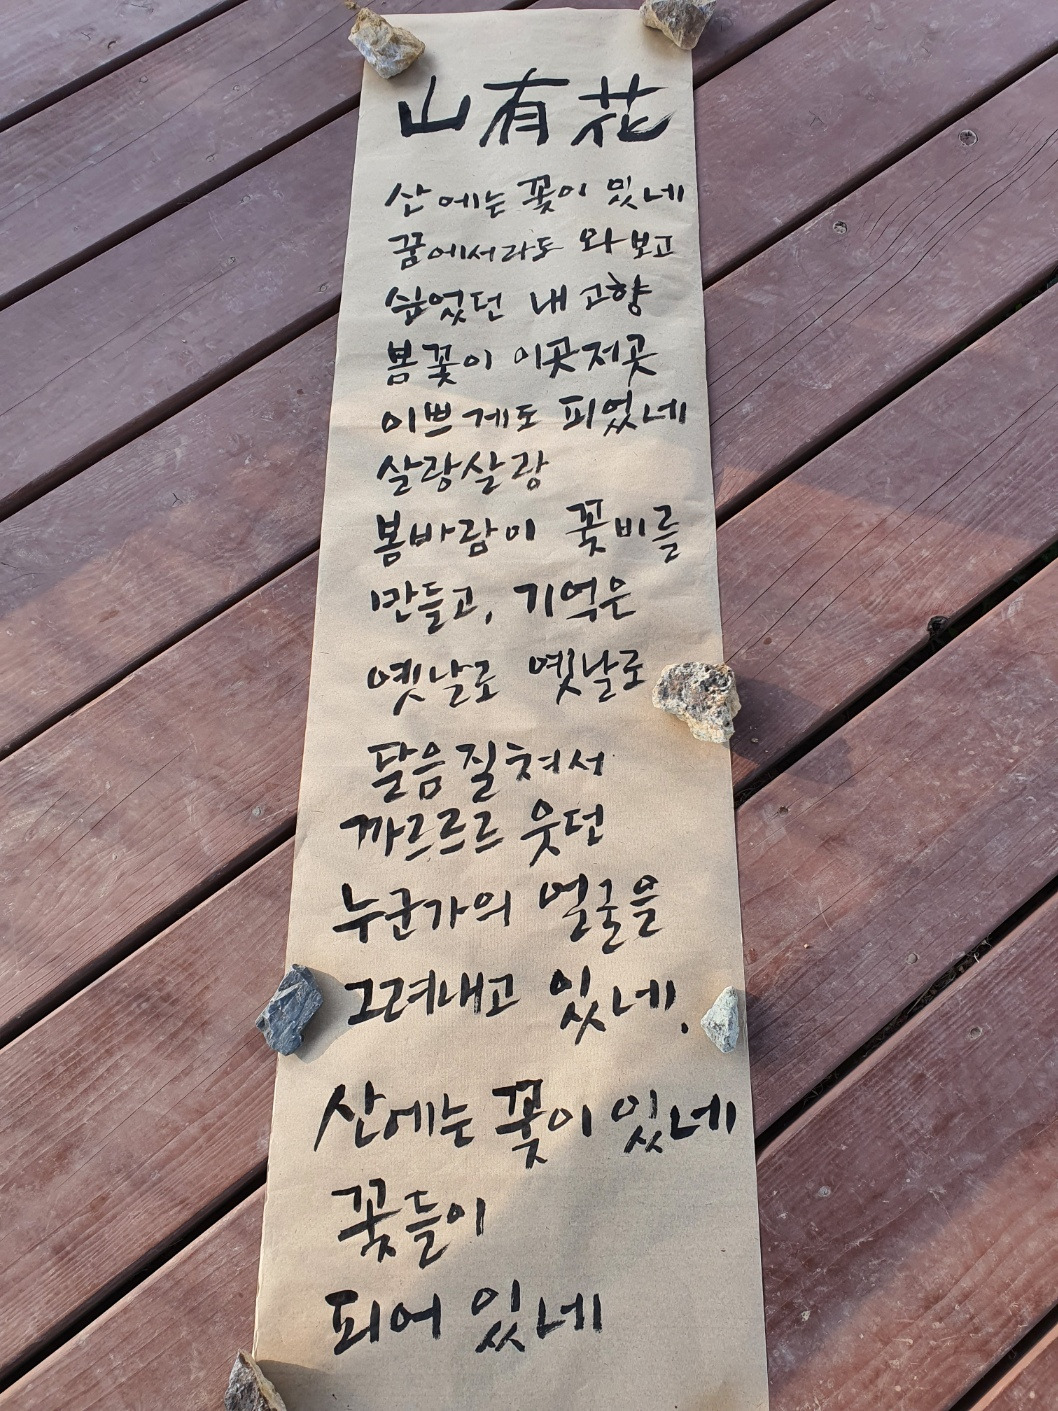 山有花
산에는 꽃이 있네
꿈에서라도 와 보고
싶었던 내 고향
봄꽃이 이곳저곳
이쁘게도 피었네
살랑살랑
봄바람이 꽃비를
만들고, 기억은
옛날로 옛날로
달음질쳐서
까르르르 웃던
누군가의 얼굴을
그려내고 있네.
산에는 꽃이 있네
꽃들이
피어 있네